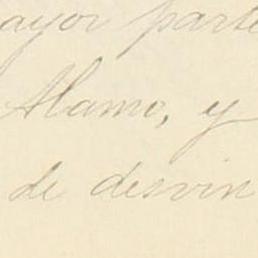 ayor parte
Alamo, y
de desvin